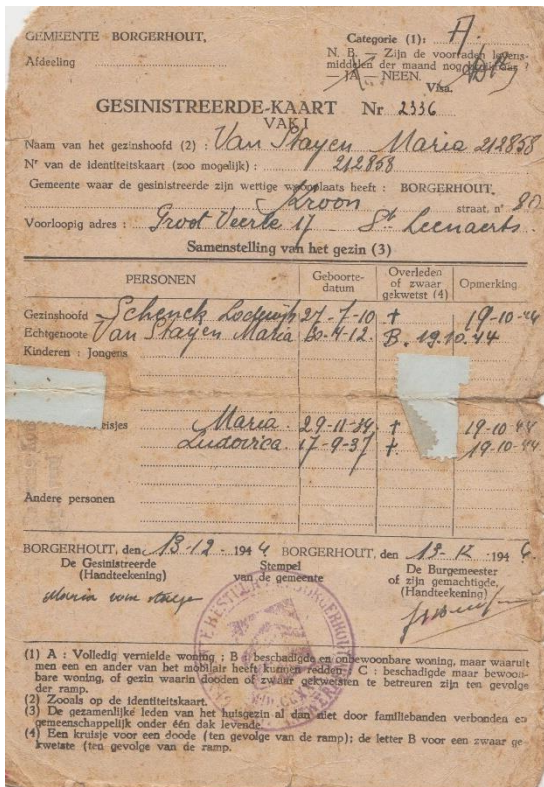 GEMEENTE BORGERHOUT,
Afdeeling
Categorie (1): A.
N. B. — Zijn de voorraden levens-
middelen der maand nog
— JA — NEEN.
Visa.
GESINISTREERDE-KAART Nr 2336
VAK I
Naam van het gezinshoofd (2) : Van Stayen Maria 212858
Nr van de identiteitskaart (zoo mogelijk) : 212858
Gemeente waar de gesinistreerde zijn wettige woonplaats heeft : BORGERHOUT,
Kroon straat, nr 80
Voorloopig adres : Groot Veerle 17 St Leenaerts.
Samenstelling van het gezin (3)
PERSONEN Geboorte-datum Overleden of zwaar gekwetst (4) Opmerking
Gezinshoofd Schenck Lodewijk 27-7-10 + 19-10-44
Echtgenoote Van Stayen Maria -4-12. B. 19.10.44
Kinderen : Jongens
eisjes Maria. 29-11-34 + 19-10-44
Ludovica 17-9-37 + 19-10-44
Andere personen
BORGERHOUT, den 13-12- 1944 BORGERHOUT, den 1944
De Gesinistreerde Stempel De Burgemeester
(Handteekening) van de gemeente of zijn gemachtigde,
(Handteekening)
Maria van
(1) A : Volledig vernielde woning ; B : beschadigde en onbewoonbare woning, maar waaruit
men een en ander van het mobilair heeft kunnen redden ; C : beschadigde maar bewoon-
bare woning, of gezin waarin dooden of zwaar gekwetsten te betreuren zijn ten gevolge
der ramp.
(2) Zooals op de identiteitskaart.
(3) De gezamenlijke leden van het huisgezin al dan niet door familiebanden verbonden en
gemeenschappelijk onder één dak levende.
(4) Een kruisje voor een doode (ten gevolge van de ramp); de letter B voor een zwaar ge-
kwetste (ten gevolge van de ramp.